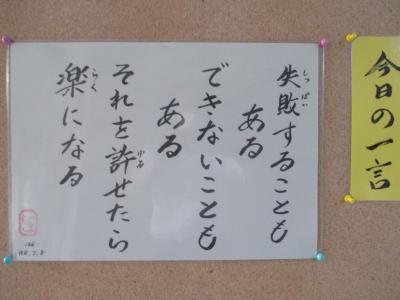 今日の一言
失敗することも
ある
できないことも
ある
それを許せたら
楽になる